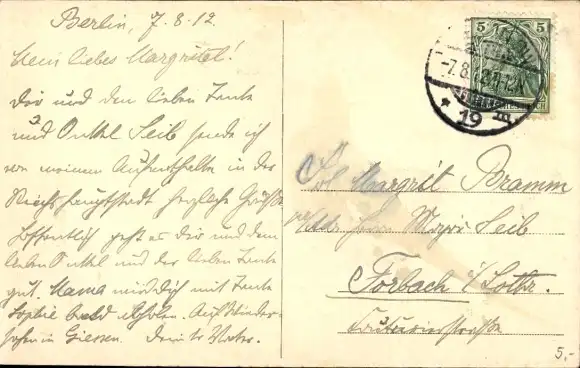 Berlin, 7.8.12.
Mein liebes Margritel!
Dir und den lieben Tante
und Onkel Seib sende ich
von meinem Aufenthalte in der
Reichshauptstadt herzliche Grüße
Hoffentlich geht es Dir und dem
lieben Onkel und der lieben Tante
gut. Mama wird Dich mit Tante
Sophie bald abholen. Auf Wieder-
sehen in Giessen. Dein tr. Vater.
5 5
-7.8.12.11-12
* 19
Frl. Margrit Bramm
Adr. Herrn Major Seib
Forbach i/Lothr.
5,-